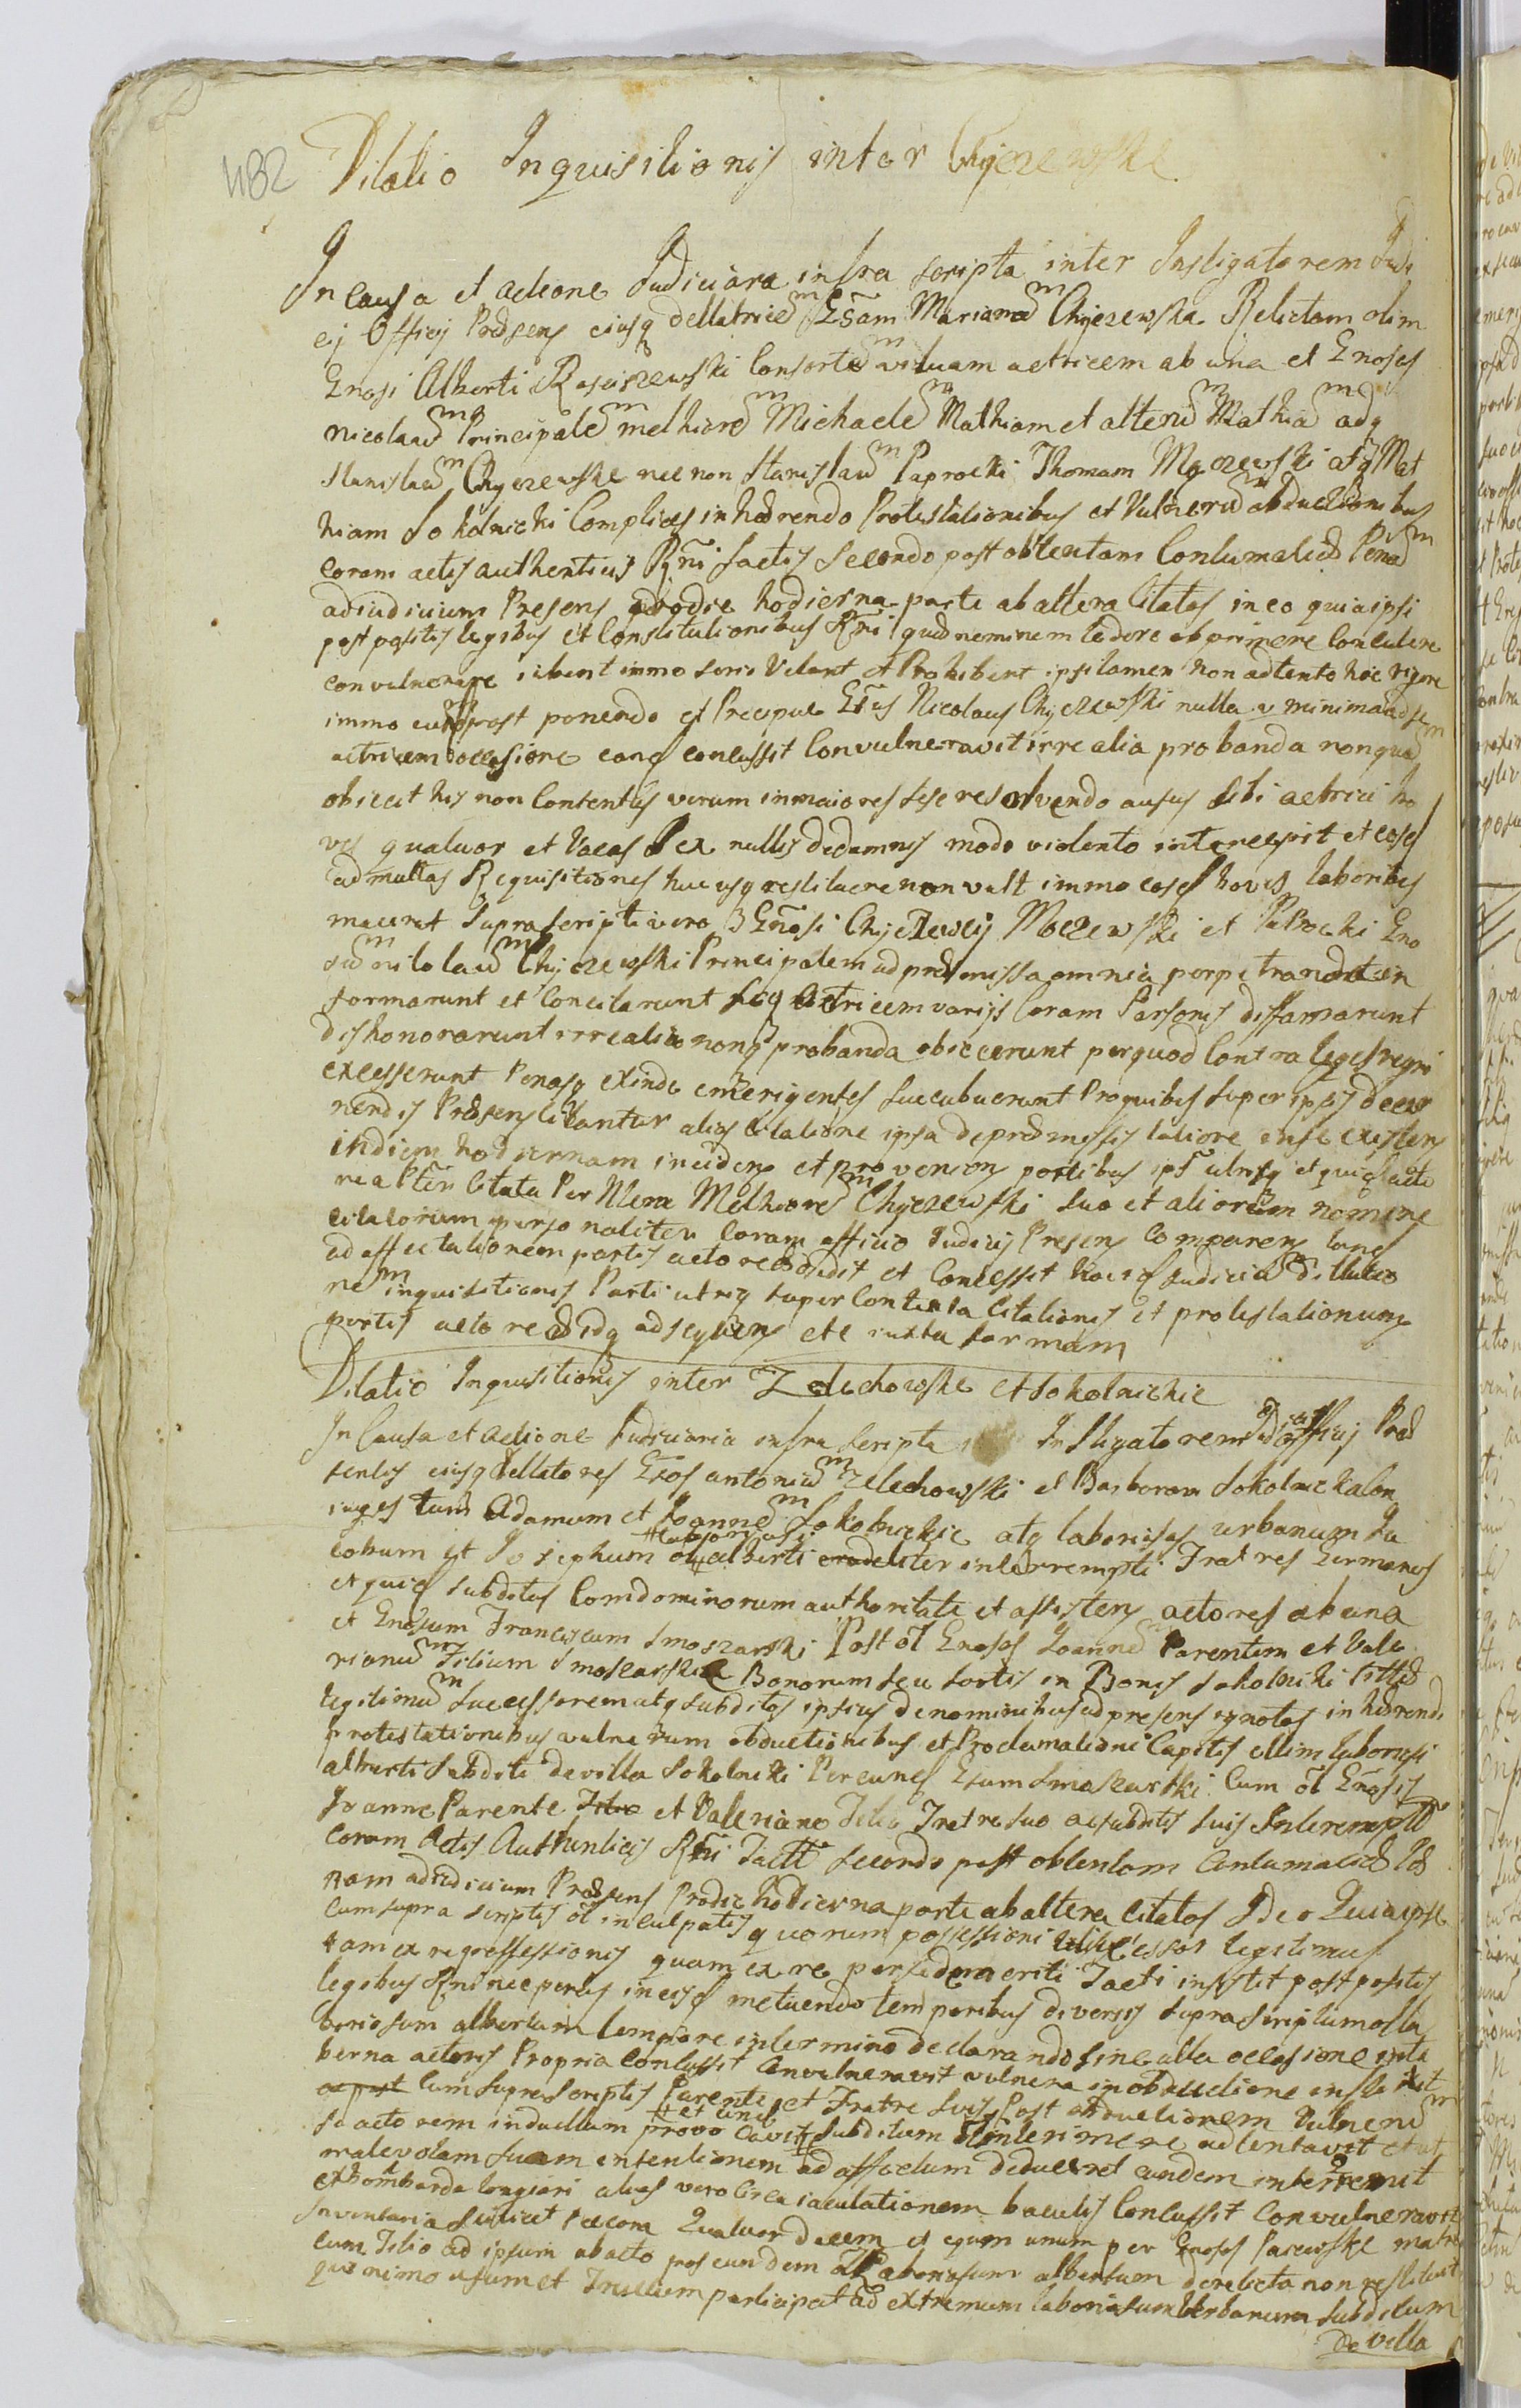 482
Dilatio Inquisitionis inter Chyczewskie
In Causa et actione Judiciara infra scripta inter Instigatorem Judi
cij Officij Prdsens eiusq dellatricem Gsam Marianam Chyczewska Relictam olim
Gnosi Alberti Rosciszewski Consortem viduam actricem ab una et Gnosos
Nicolaum Principalem melhiorem Michaelem Mathiam et alterum Mathiam adq
Stanislaum Chyczewskie nec non Stanislaum Paprocki Thomam Mączewski atq Mat
hiam Sokolnicki Complices inhœrendo Protestationibus et Vulnerum obductionibus
coram actis authenticis Rgni factis secundo post obtentam Contumaciœ Penam
adiudicium Presens prodie hodierna parte ab altera Citatos in eo quia ipsi
post positis legibus et Constitutionibus Rni quœ neminem ledere obprimere Conculere
convulnerare iubent immo serio Vetant et Prohibent ipsi tamen non adtento hoc rigore
immo eum post ponendo et Precipue Gsus Nicolaus Chyczewski nulla v minima ad se
actricem occasione eand concussit Convulneravit irrealia probanda nonquam
obiecit his non Contentus verum inmaiores sese resolvendo ausus sibi actrici bo
ves qualuor et Vacas sex nullis dedamnis modo violento intercepit et eosd
ad multas Requisitiones hucusq restituere non vult immo eosd boves laboribus
macerat Suprascripti vero Gnosi Chyczewscij Mączewski et Paprocki Gno
sum nicolaum Chyczewski Principalem ad prœmissa omnia perpetranda in
formarunt et Concitarunt seq actricem varijs Coram Personis diffamarunt
dishonorarunt irrealia nonq probanda obiecerunt perquod Contra leges regni
excesserunt Penasq exinde emerigentes succubuerunt Proquibus super ipsis decer
nendis Prœsens Citantur alias Citatione ipsa de prœmissis latiore in se existens
indiem hodiernam incidens et provenien partibus ips utrisq et quid acto
rea Pter Citata Per Nlem Melhiorem Chyczewski suo et aliorum nomine
citatorum personaliter Coram officio Judicij Presens Comparens tand
ad affectationem partis actorea dedit et Concessit hocce Judicia Dillatio
nem inquisitionis Parti utriq super Contenta Citationis et protestationum
partis actorea œ idq ad sequens etc iuxta formam
Dilatio Inquisitionis inter Zelechowskie et Sokolnickie
In Causa et actione Judiciaria infra scripta Instigatorem Judicij officij Prœ
sentis eiusq dellatores Gsos antonium Zelechowski et Barbaram Sokolnicka Con
iuges tum Adamum et Joannem Sokolnickie atq laboriosos urbanum Ja
cobum et Josephum ol laboriosi alberti crudeliter interrempti Fratres Germanos
et quid subditos Comdominorum authoritate et assistens actores ab una
et Gnosum Franciscum Smoszarski Post ol Gnosos Joannem Parentem et Vale
rianum Filium Smoszarskie Bonorum seu sortis in Bonis Sokolniki
legitimum Successorem atq subditos ipsius de nominibus ad presens ignotos in hœrendo
protestationibus vulnerum obductionibus et Proclamationi Capitis ollim laboriosi
alberti subditi de villa Sokolniki Per eund Gsum Smoszarski Cum ol Gnosis
Joanne Parente Filio et Valeriano Filio Fratre suo ac subditis suis Interempto
coram Actis Authenticis Rni Facte secundo post obtentam Contumaciœ Pœ
nam adiudicium Prœsens Prodie hodierna parte ab altera Citatos Ideo Quia ipse
Cum supra scriptis ol inculpatis quorum possessioni successor legitimus
tam ex re possessionis quam ex re persidem criti Facti insistit post positis
legibus Rni nec penas in eisd metuendo temporibus diversis supra scriptum ol la
boriosum albertum tempore intermino declarando sine ulla occasione inta
berna actoris Propria Concussit Convulneravit vulnera in obductione inflixit
ac post Cum supra scriptis Parente et Fratre suis Post obductionem Vulnerum
se actorem induellum provo cavit et eund Subditum ol interimere adtentavit et ut
malevolam suam intentionem ad affectum deduceret eundem interremit
ex bombarda longiori alias vero Circa iaculationem baculis Concussit Convulneravit
Inventaria scilicet Pecora Qualuor decem et equm unum per Gnosos Parewskie matre
cum Filio ad ipsum ab acto pos eundem ol laboriosum albertum derelicta non restituit
qui nimo usum et Fructum participat ad extremum laboriosum Urbanum Subditum
de villa